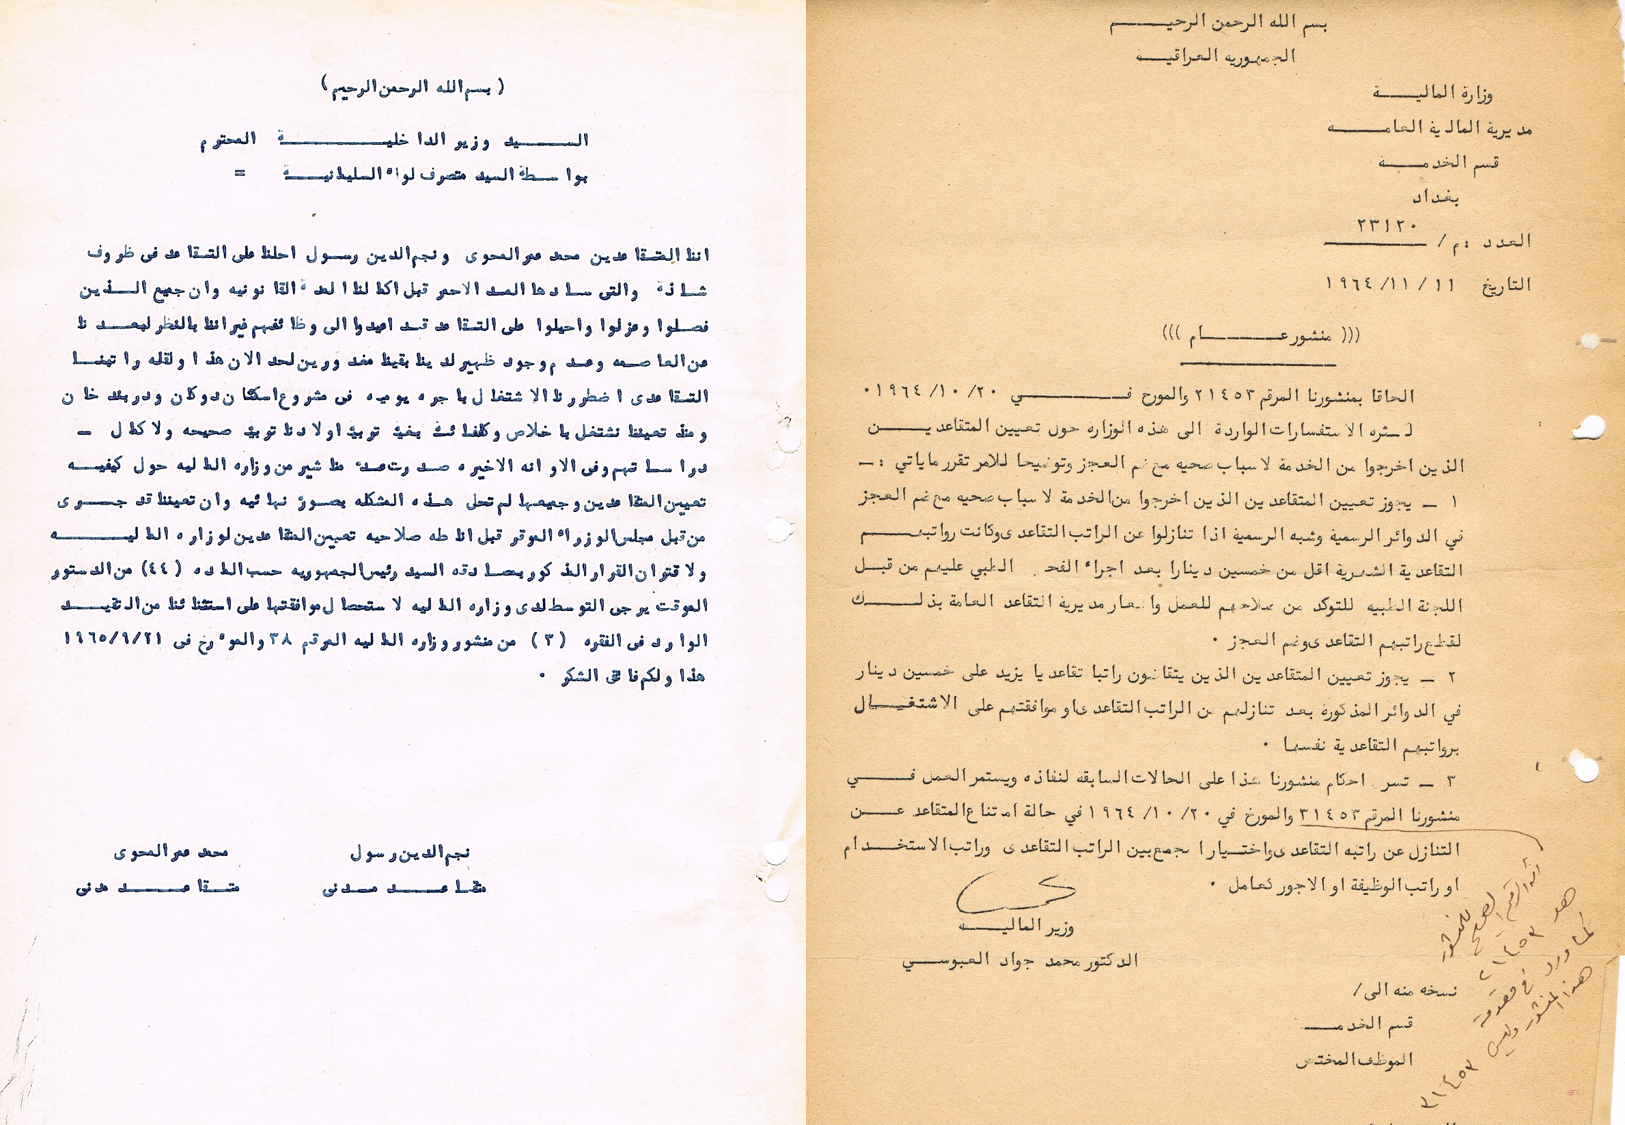 بسم الله الرحمن الرحيـــــــم
الجمهوريه العراقيـــه
وزارة الماليـــــة
مديرية المالية العامـــــه
قسم الخدمـــــة
بغداد
العدد : م / ٢٣١٢٠
التاريخ ١١ / ١١/ ١٩٦٤
((( منشور عـــــــام )))
الحاقا بمنشورنا المرقم ٢١٤٥٣ والمورح فـــــــــي ٢٠/ ١٠/ ١٩٦٤ ٠
لكثره الاستفسارات الواردة الى هذه الوزاره حول تعيين المتقاعديـــــن
الذين اخرجوا من الخدمة لاسباب صحيه مع ضم العجز وتوضيحا للامر تقرر ماياتي : ــ
١ ــ يجوز تعيين المتقاعدين الذين اخرجوا من الخدمة لاسباب صحيه مع ضم العجز
في الدوائر الرسمية وشبه الرسمية اذا تنازلوا عن الراتب التقاعدى وكانت رواتبهــــم
التقاعدية الشهرية اقل من خمسين دينارا بعد اجراء الفحص الطبي عليهم من قبـــل
اللجنة الطبيه للتوكد من صلاحهم للعمل واشعار مديرية التقاعد العامة بذلـــــك
لقطع راتبهم التقاعدى وضم العجز ٠
٢ ــ يجوز تعيين المتقاعدين الذين يتقاضون راتبا تقاعديا يزيد على خمسين دينار
في الدوائر المذكورة بعد تنازلهم عن الراتب التقاعدى او موافقتهم على الاشتغـــال
برواتبهم التقاعدية نفسها ٠
٣ ــ تسرى احكام منشورنا هذا على الحالات السابقه لنفاذه ويستمر العمل فـــــي
منشورنا المرقم ٣١٤٥٣ والمورخ في ٢٠/ ١٠/ ١٩٦٤ في حالة امتناع المتقاعد عـــن
التنازل عن راتبه التقاعدى واختيارا لجمع بين الراتب التقاعدى وراتب الاستخـــدام
او راتب الوظيفة او الاجور كعامل ٠
وزير الماليـــــة
الدكتور محمد جواد العبوســـي
نسخه منه الى/
قسم الخدمـــــ
الموظف المختص
الرقم الصحيح للمنشور
هو ٢١٤٥٣
لما ورد في مقدمة
هذا المنشور وليس ٣١٤٥٣
( بسم الله الرحمن الرحيم )
الســــيد وزير الداخليـــــــــة المحترم
بواسطة السيد متصرف لواء السليمانيـــــة =
اننا المتقاعدين محمد عمر المحوى ونجم الدين رسول احلنا على التقاعد فى ظروف
شاذة والتى سادها المد الاحمر قبل اكمالنا المدة القانونيه وان جميع الـــذين
فصلوا وعزلوا واحيلوا على التقاعد قد اعيدوا الى وظائفهم غير اننا بالنظر لبعــدنا
عن العاصمه وعدم وجود ظهير لدينا بقينا مغدورين لحد الان هذا ولقله راتبنـــا
التقاعدى اضطررنا الاشتغال باجره يوميه فى مشروع اسكان دوكان ودربند خان
ومنذ تعييننا نشتغل باخلاص وكفاءة بغية تربية اولادنا تربية صحيحه ولاكمال ــ
دراساتهم وفى الاونه الاخيره صدرت عدة مناشير من وزاره الماليه حول كيفيــه
تعيين المتقاعدين وجميعها لم تحل هذه المشكله بصورة نهائيه وان تعييننا قد جـــرى
من قبل مجلس الوزراء الموقر قبل اناطه صلاحيه تعيين المتقاعدين لوزاره الماليـــــه
ولاقتران القرار المذكور بمصادقه السيد رئيس الجمهوريه حسب الماده (٤٤) من الدستور
الموقت يرجى التوسط لدى وزاره الماليه لاستحصال موافقتها على استثنائنا من التقيـــد
الوارد فى الفقره (٣) من منشور وزاره الماليه المرقم ٣٨ والموءرخ فى ١٩٦٥/٩/٢١
هذا ولكم فائق الشكر ٠
نجم الدين رسول محمد عمر المحوى
متقاعــــد مــدنى متقاعـــــد مدنى